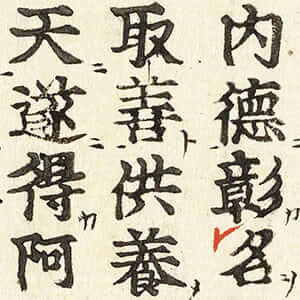 内徳彰名
取善供養
天遂得阿